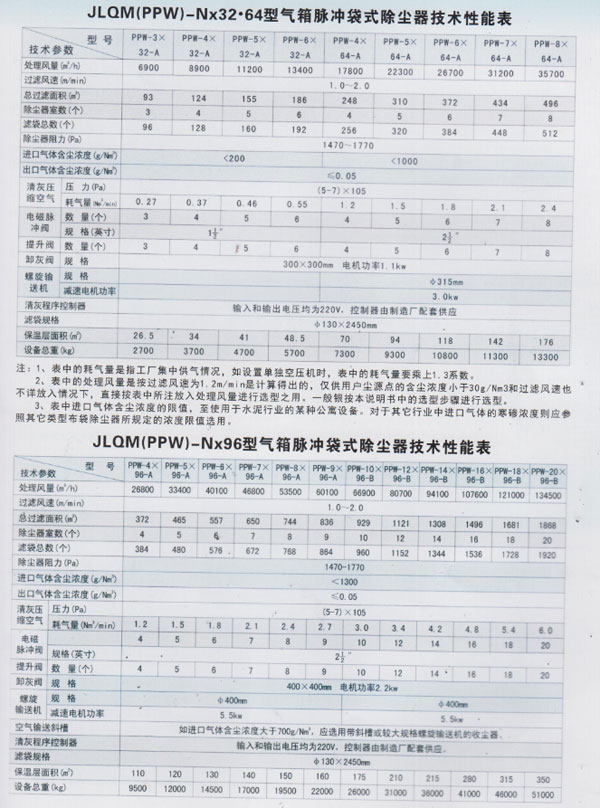 JLQM(PPW)-Nx32•64型气箱脉冲袋式除尘器技术性能表
型 号 PPW-3× PPW-4× PPW-5× PPW-6× PPW-4× PPW-5× PPW-6× PPW-7× PPW-8×
技术参数 32-A 32-A 32-A 32-A 64-A 64-A 64-A 64-A 64-A
处理风量(m³/h) 6900 8900 11200 13400 17800 22300 26700 31200 35700
过滤风速(m/min) 1.0~2.0
总过滤面积(m²) 93 124 155 186 248 310 372 434 496
除尘器室数(个) 3 4 5 6 4 5 6 7 8
滤袋总数(个) 96 128 160 192 256 320 384 448 512
除尘器阻力(Pa) 1470~1770
进口气体含尘浓度(g/Nm³) <200 <1000
出口气体含尘浓度(g/Nm³) ≤0.05
清灰压缩空气 压 力(Pa) (5~7)×105
耗气量(Nm³/min) 0.27 0.37 0.46 0.55 1.2 1.5 1.8 2.1 2.4
电磁脉冲阀 数 量(个) 3 4 5 6 4 5 6 7 8
规 格(英寸) 1½" 2½"
提升阀 数 量(个) 3 4 5 6 4 5 6 7 8
卸灰阀 规 格 300×300mm 电机功率1.1kw
螺旋输送机 规 格 φ315mm
减速电机功率 3.0kw
清灰程序控制器 输入和输出电压均为220V，控制器由制造厂配套供应
滤袋规格 φ130×2450mm
保温层面积(m²) 26.5 34 41 48.5 70 94 118 142 176
设备总重(kg) 2700 3700 4700 5700 7300 9300 10800 11300 13300
注：1、表中的耗气量是指工厂集中供气情况，如设置单独空压机时，表中的耗气量要乘上1.3系数。
2、表中的处理风量是按过滤风速为1.2m/min是计算得出的，仅供用户尘源点的含尘浓度小于30g/Nm3和过滤风速也
不详放入情况下，直接按表中所注放入处理风量进行选型之用。一般银接本说明书中的选型步骤进行选型。
3、表中进口气体含尘浓度的限值，至使用于水泥行业的某种公寓设备。对于其它行业中进口气体的寒碜浓度则应参
照其它类型布袋除尘器所规定的浓度限值选用。
JLQM(PPW)-Nx96型气箱脉冲袋式除尘器技术性能表
型 号 PPW-4× PPW-5× PPW-6× PPW-7× PPW-8× PPW-9× PPW-10× PPW-12× PPW-14× PPW-16× PPW-18× PPW-20×
技术参数 96-A 96-A 96-A 96-A 96-A 96-A 96-B 96-B 96-B 96-B 96-B 96-B
处理风量(m³/h) 26800 33400 40100 46800 53500 60100 66900 80700 94100 107600 121000 134500
过滤风速(m/min) 1.0~2.0
总过滤面积(m²) 372 465 557 650 744 836 929 1121 1308 1496 1681 1868
除尘器室数(个) 4 5 6 7 8 9 10 12 14 16 18 20
滤袋总数(个) 384 480 576 672 768 864 960 1152 1344 1536 1728 1920
除尘器阻力(Pa) 1470-1770
进口气体含尘浓度(g/Nm³) <1300
出口气体含尘浓度(g/Nm³) ≤0.05
清灰压缩空气 压力(Pa) (5~7)×105
耗气量(Nm³/min) 1.2 1.5 1.8 2.1 2.4 2.7 3.0 3.4 4.2 4.8 5.4 6.0
电磁脉冲阀 4 5 6 7 8 9 10 12 14 16 18 20
规格(英寸) 2½"
提升阀 数 量(个) 4 5 6 7 8 9 10 12 14 16 18 20
卸灰阀 规 格 400×400mm 电机功率2.2kw
螺旋输送机 规 格 φ400mm φ400mm
减速电机功率 5.5kw 5.5kw
空气输送斜槽 如进口气体含尘浓度大于700g/Nm³，应选用带斜槽或较大规格螺旋输送机的收尘器。
清灰程序控制器 输入和输出电压均为220V，控制器由制造厂配套供应。
滤袋规格 φ130×2450mm
保温层面积(m²) 110 120 130 140 150 160 175 210 215 280 315 350
设备总重(kg) 9500 12000 14500 17000 19500 22000 26000 31000 36000 41000 46000 51000